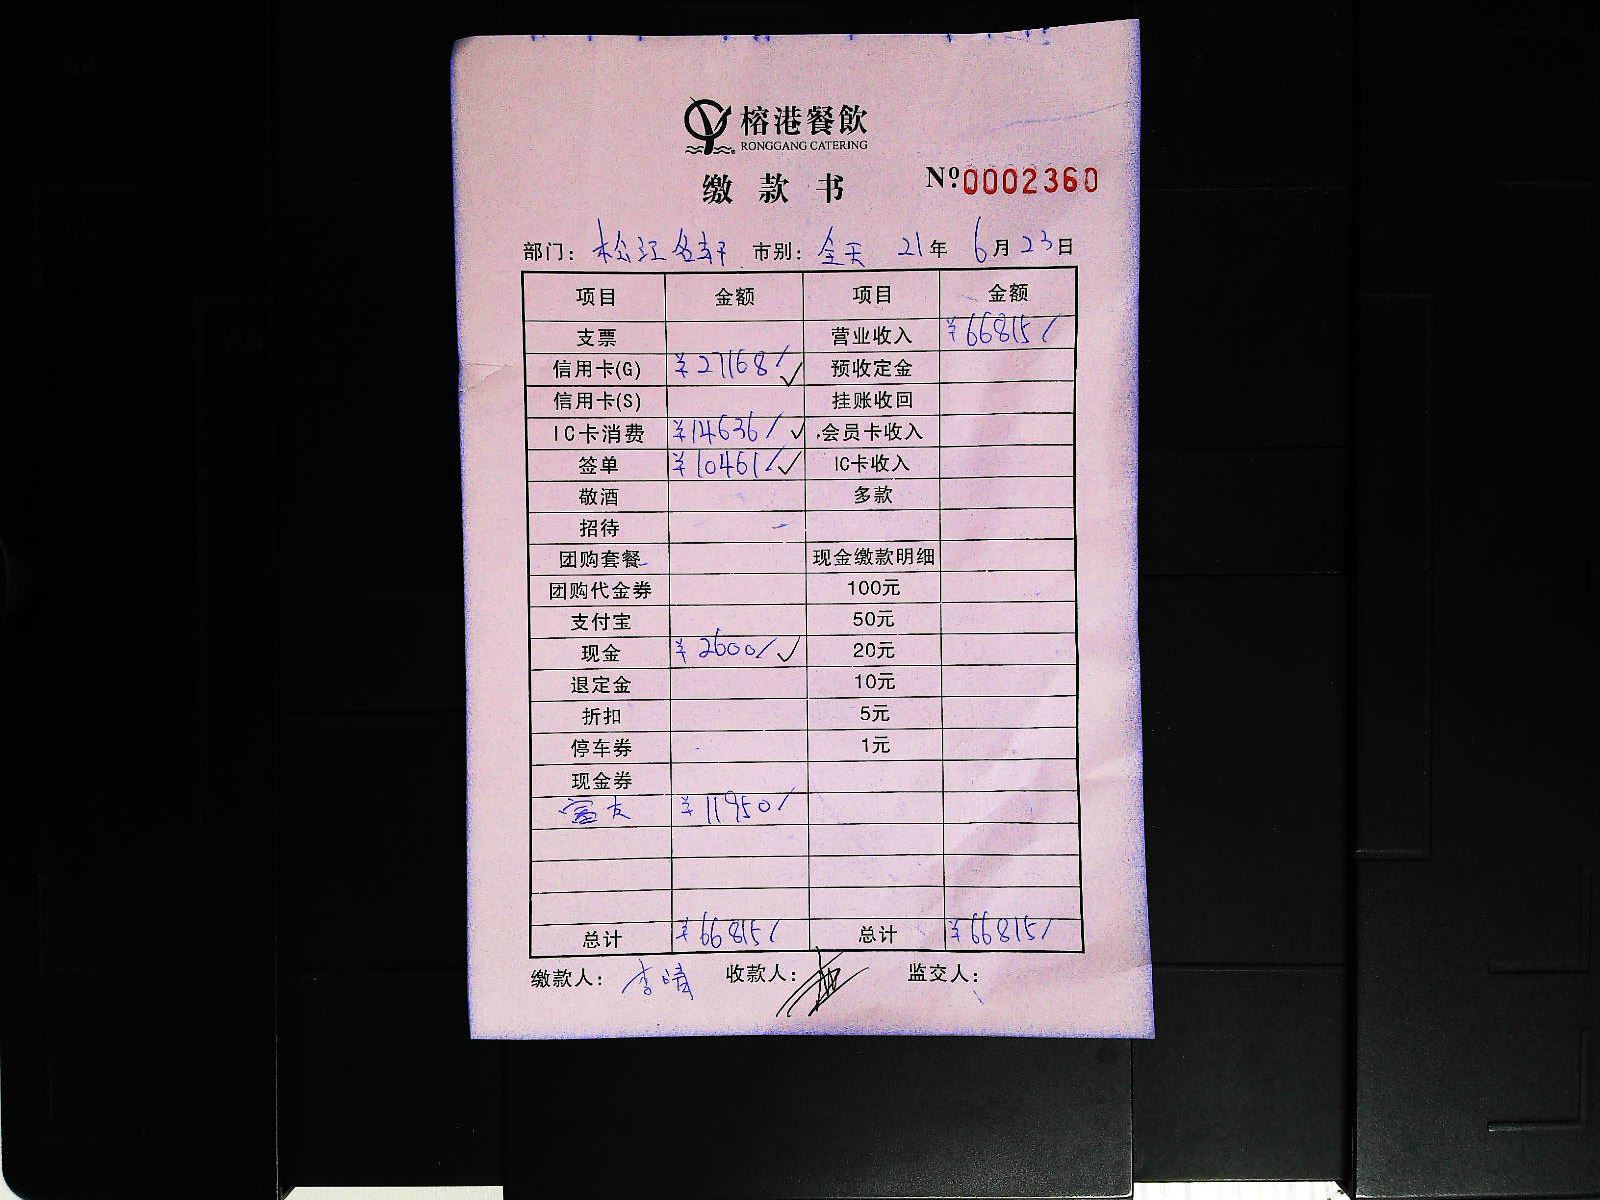 榕港餐飲
RONGGANG CATERING
缴款书 №0002360
部门: 松江名轩 市别: 全天 21年 6月23日
项目 金额 项目 金额
支票 营业收入 ¥66815/
信用卡(G) ¥27168/ ✓ 预收定金
信用卡(S) 挂账收回
IC卡消费 ¥14636/ ✓ 会员卡收入
签单 ¥10461/ ✓ IC卡收入
敬酒 多款
招待
团购套餐 现金缴款明细
团购代金券 100元
支付宝 50元
现金 ¥2600/ ✓ 20元
退定金 10元
折扣 5元
停车券 1元
现金券
富友 ¥11950/
总计 ¥66815/ 总计 ¥66815/
缴款人: 李晴 收款人: 监交人: